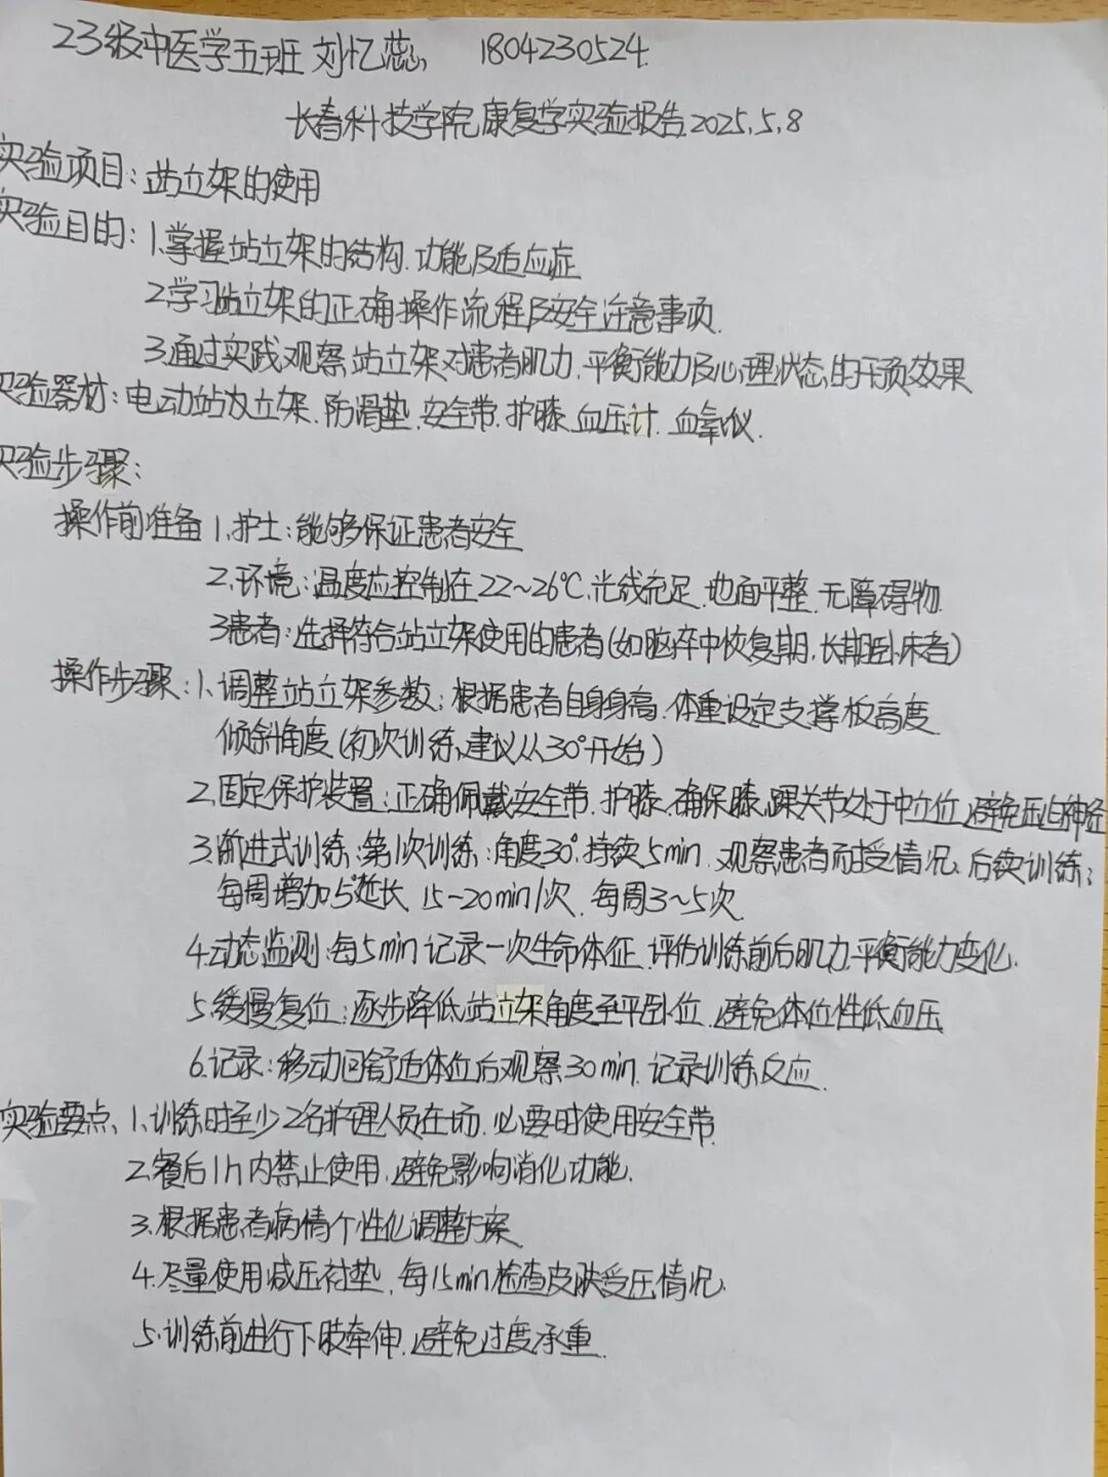 23级中医学五班 刘忆蕊 1804230524.
长春科技学院康复学实验报告2025.5.8
实验项目：站立架的使用
实验目的：1.掌握站立架的结构.功能及适应症
2.学习站立架的正确操作流程及安全注意事项.
3.通过实践观察站立架对患者肌力.平衡能力及心理状态的干预效果
实验器材：电动站立架.防滑垫.安全带.护膝.血压计.血氧仪.
实验步骤：
操作前准备 1.护士：能够保证患者安全
2.环境：温度应控制在22~26℃.光线充足.地面平整.无障碍物.
3患者：选择符合站立架使用的患者(如脑卒中恢复期.长期卧床者)
操作步骤：1.调整站立架参数：根据患者自身身高.体重设定支撑板高度.
倾斜角度(初次训练建议从30°开始)
2.固定保护装置：正确佩戴安全带.护膝.确保膝.踝关节处于中立位.避免压迫神经
3.渐进式训练：第1次训练：角度30°.持续5min.观察患者耐受情况.后续训练：
每周增加5°延长 15~20min/次.每周3~5次.
4.动态监测：每5min记录一次生命体征.评估训练前后肌力.平衡能力变化.
5.缓慢复位：逐步降低站立架角度至平卧位.避免体位性低血压
6.记录：移动回舒适体位后观察30min.记录训练反应.
实验要点、1.训练时至少2名护理人员在场.必要时使用安全带.
2.餐后1h内禁止使用.避免影响消化功能.
3.根据患者病情个性化调整方案
4.尽量使用减压衬垫.每15min检查皮肤受压情况.
5.训练前进行下肢牵伸.避免过度承重.